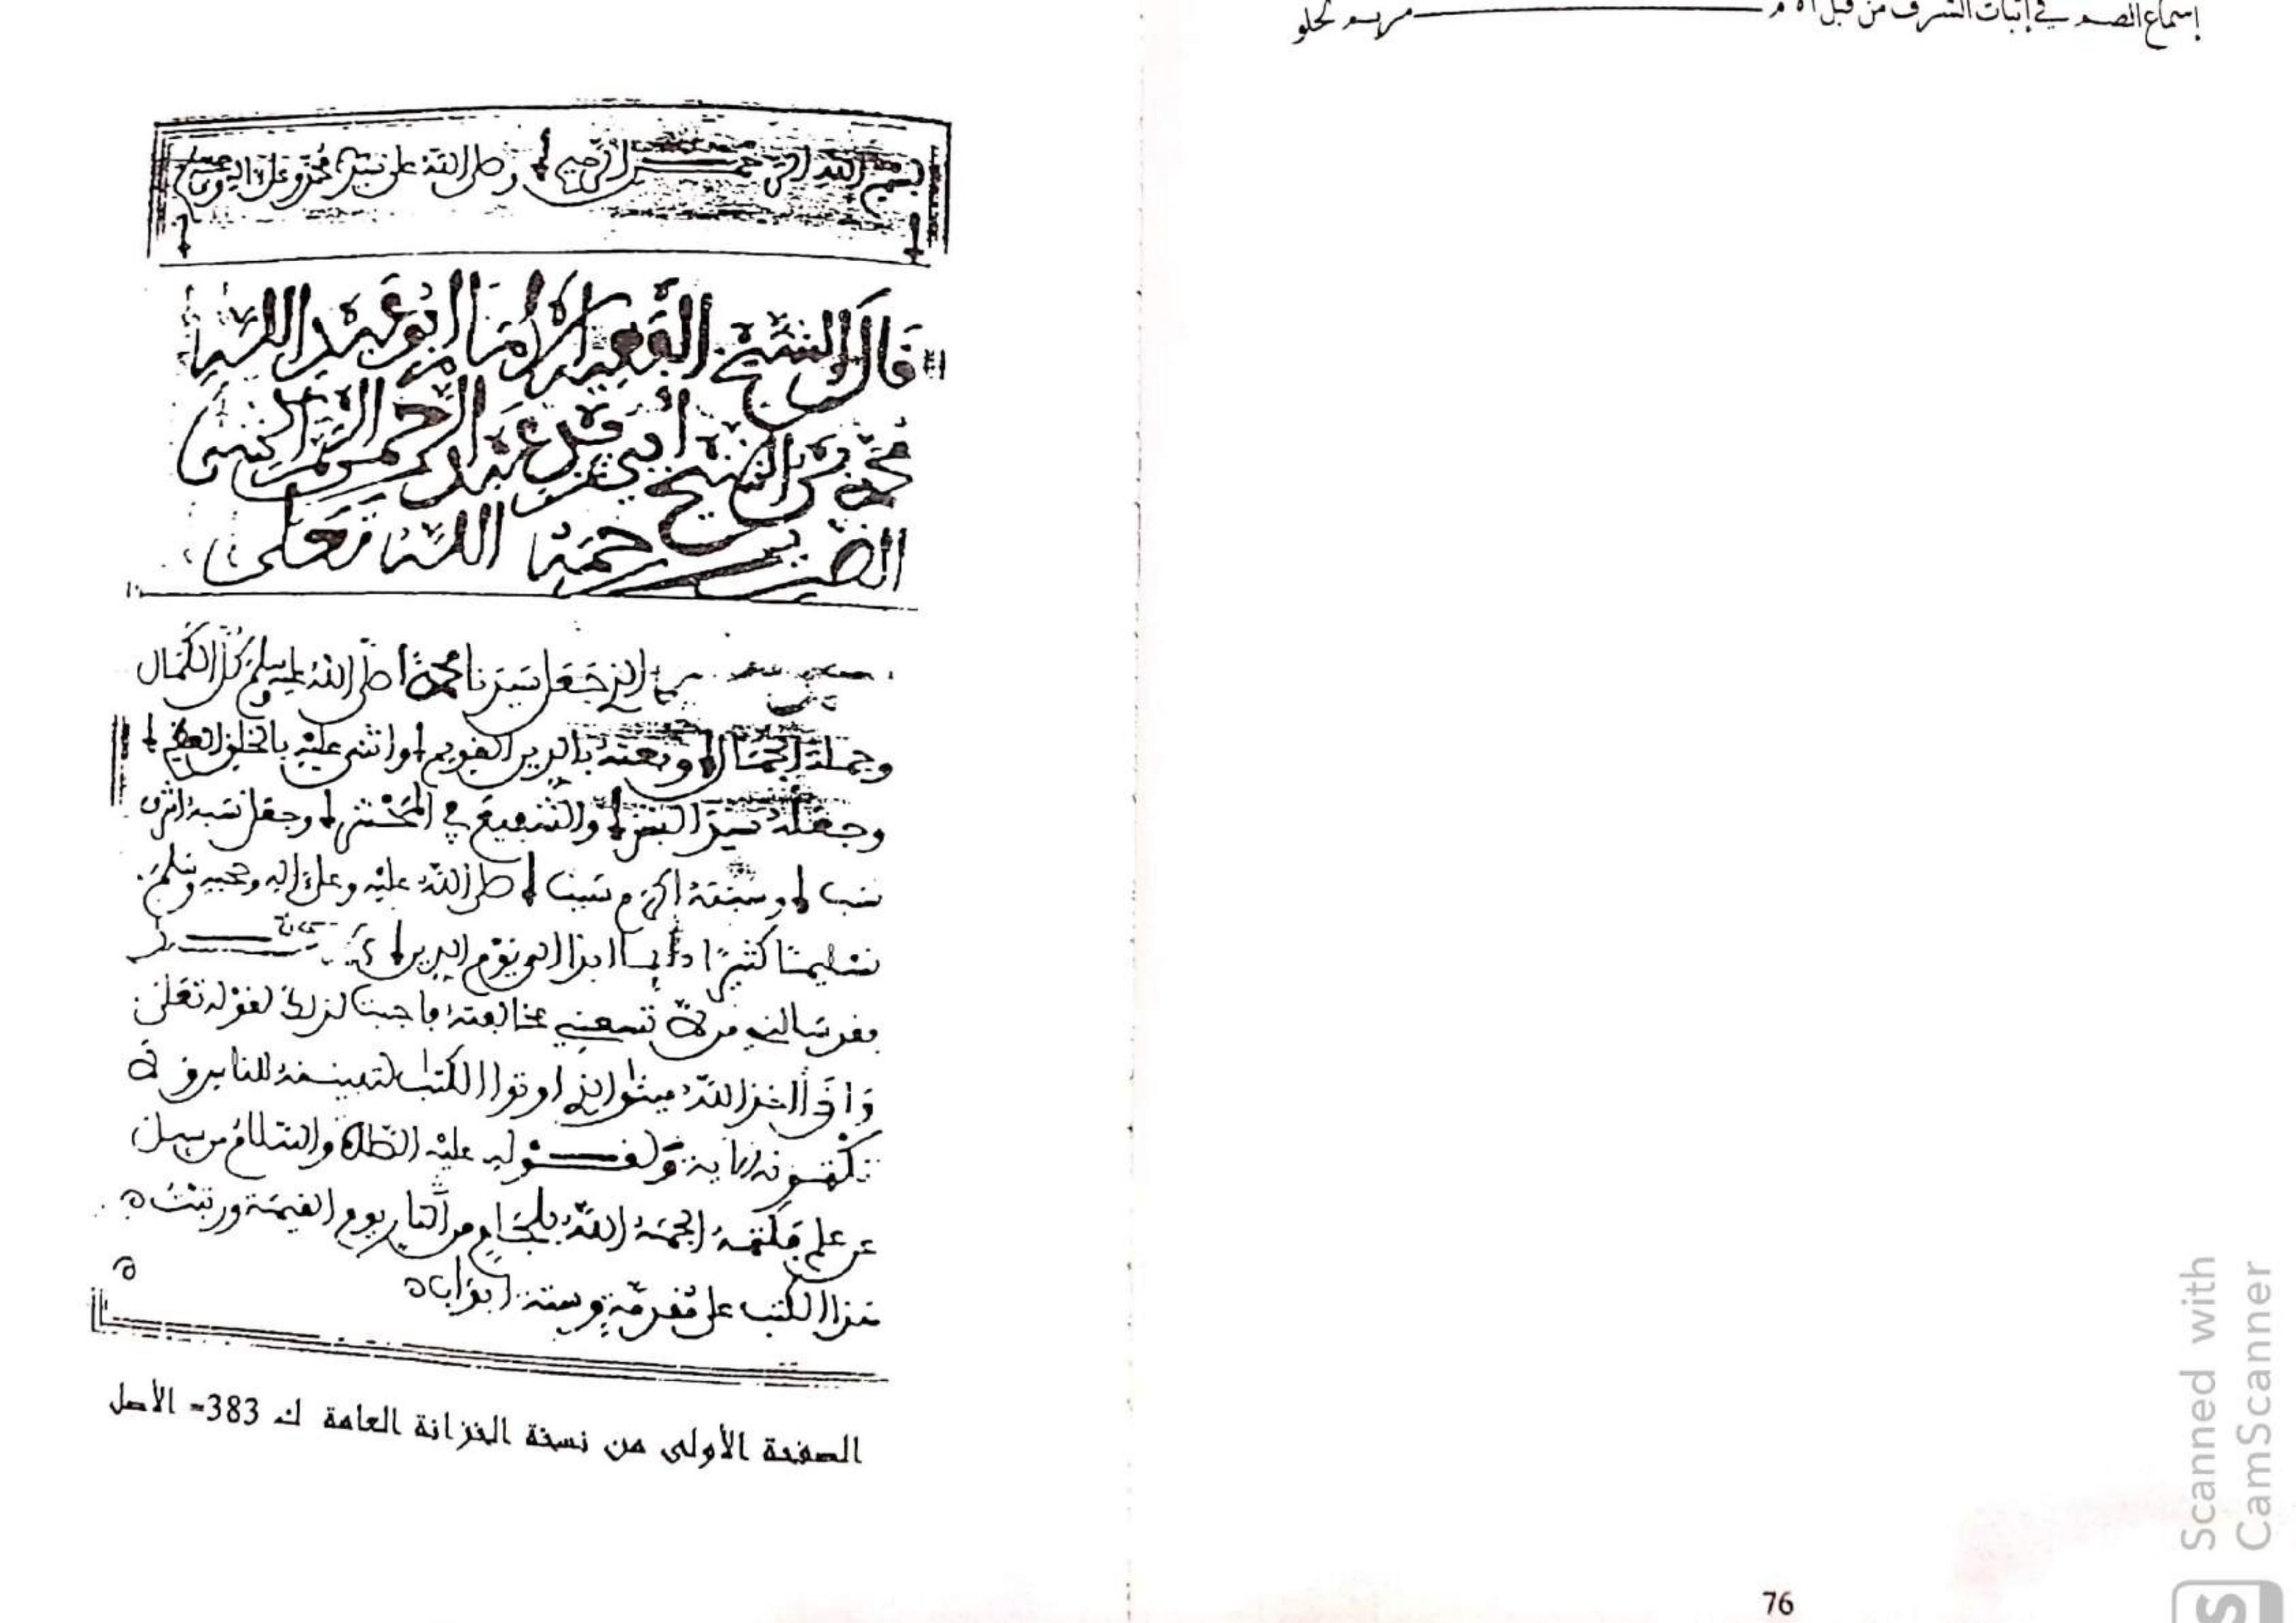 إسماع الصم في إثبات الشرف من قبل الأم مريم لحلو
76
بسم الله الرحمن الرحيم وصلى الله على سيدنا محمد وعلى آله وصحبه
قال الشيخ الفقيه الإمام أبو عبد الله
محمد بن الشيخ أبي عبد الرحمن المراكشي
الضرير رحمه الله تعلى
الذي جعل سيدنا محمدا صلى الله عليه وسلم كل الكمال
وجملة الجمال وبعثه بالدين القويم وأثنى عليه بالخلق العظيم
وجعله سيد البشر والشفيع في المحشر وجعل نسبه أشرف
نسب وسببه أكرم سبب صلى الله عليه وعلى آله وصحبه وسلم
تسليما كثيرا دايما أبدا إلى يوم الدين
فقد سألني من لا تسعني مخالفته فأجبت لذلك لقوله تعلى
وإذ أخذ الله ميثق الذين أوتوا الكتب لتبيننه للناس ولا
تكتمونه الآية ولقوله عليه الصلاة والسلام من سيل
عن علم فكتمه ألجمه الله بلجام من النار يوم القيمة ورتبت
هذا الكتب على مقدمة وستة أبواب
الصفحة الأولى من نسخة الخزانة العامة ك 383= الأصل
Scanned with
CamScanner